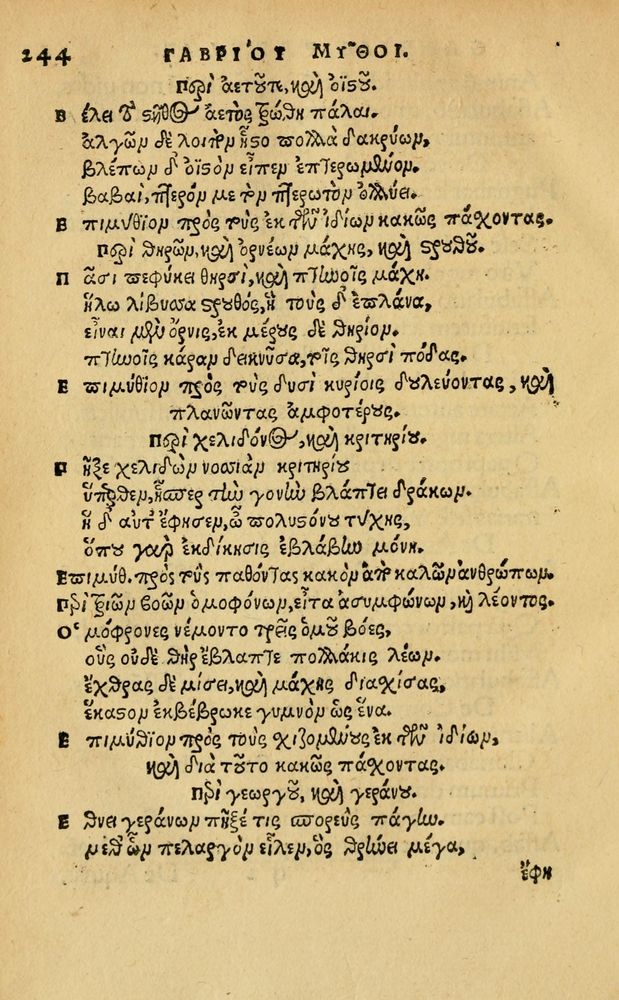 244 ΓΑΒΡΙΟΥ ΜΥΘΟΙ.
περὶ ἀετοῦ, καὶ ὀϊστοῦ.
Βέλει τὸ στῆθος ἀετὸς ἐτρώθη πάλαι.
ἀλγῶν δὲ λοιπὸν ἧστο πολλὰ δακρύων,
βλέπων δ' ὀϊστὸν εἶπεν ἐπτερωμένον.
βαβαὶ, πτερόν με τὸν πτερωτὸν ὀλλύει.
Επιμύθιον πρὸς τοὺς ἐκ τῶν ἰδίων κακῶς πάχοντας.
περὶ θηρῶν, καὶ ὀρνέων μάχης, καὶ στρουθοῦ.
Πᾶσι πεφύκει θηρσὶ, καὶ πτηνοῖς μάχη.
ἥλω λίβυσσα στρουθός, ἣ τοὺς δ' ἐπλάνα,
εἶναι μὲν ὄρνις, ἐκ μέρους δὲ θηρίον.
πτηνοῖς κάραν δεικνῦσα, τοῖς θηρσὶ πόδας.
Επιμύθιον πρὸς τοὺς δυσὶ κυρίοις δουλεύοντας, καὶ
πλανῶντας ἀμφοτέρους.
περὶ χελιδόνος, καὶ κριτηρίου.
Πῆξε χελιδὼν νοσσιὰν κριτηρίου
ὕπερθεν, ἧσπερ τὴν γονὴν βλάπτει δράκων.
ἣ δ' αὖτ' ἔφησεν, ὦ πολυστόνου τύχης,
ὅπου γὰρ ἐκδίκησις ἐβλάβην μόνη.
Επιμύθ. πρὸς τοὺς παθόντας κακὸν ἀπὸ καλῶν ἀνθρώπων.
περὶ τριῶν βοῶν ὁμοφόνων, εἶτα ἀσυμφώνων, καὶ λέοντος.
Ὁμόφρονες νέμοντο τρεῖς ὁμοῦ βόες,
οὓς οὐδὲ θὴρ ἔβλαπτε πολλάκις λέων.
ἔχθρας δὲ μίσει, καὶ μάχης διαχίσας,
ἕκαστον ἐκβέβρωκε γυμνὸν ὡς ἕνα.
Επιμύθιον πρὸς τοὺς χιζομένους ἐκ τῶν ἰδίων,
καὶ διὰ τοῦτο κακῶς πάχοντας.
περὶ γεωργοῦ, καὶ γεράνου.
Εθνει γεράνων πῆξέ τις σπορεὺς πάγην.
μεθ' ὧν πελαργὸν εἷλεν, ὃς θρήνει μέγα,
ἔφη